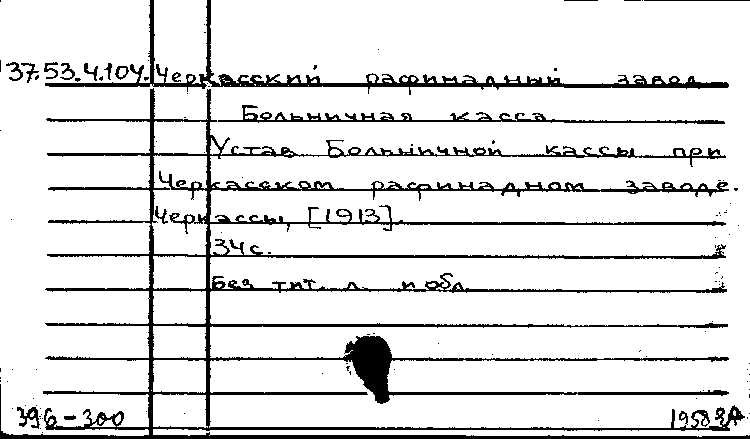 37.53.4.104. Черкасский рафинадный завод
Больничная касса
Устав Больничной кассы при
Черкасском рафинадном заводе.
Черкассы, [1913].
34 с.
Без тит. л. и обл.
396-300